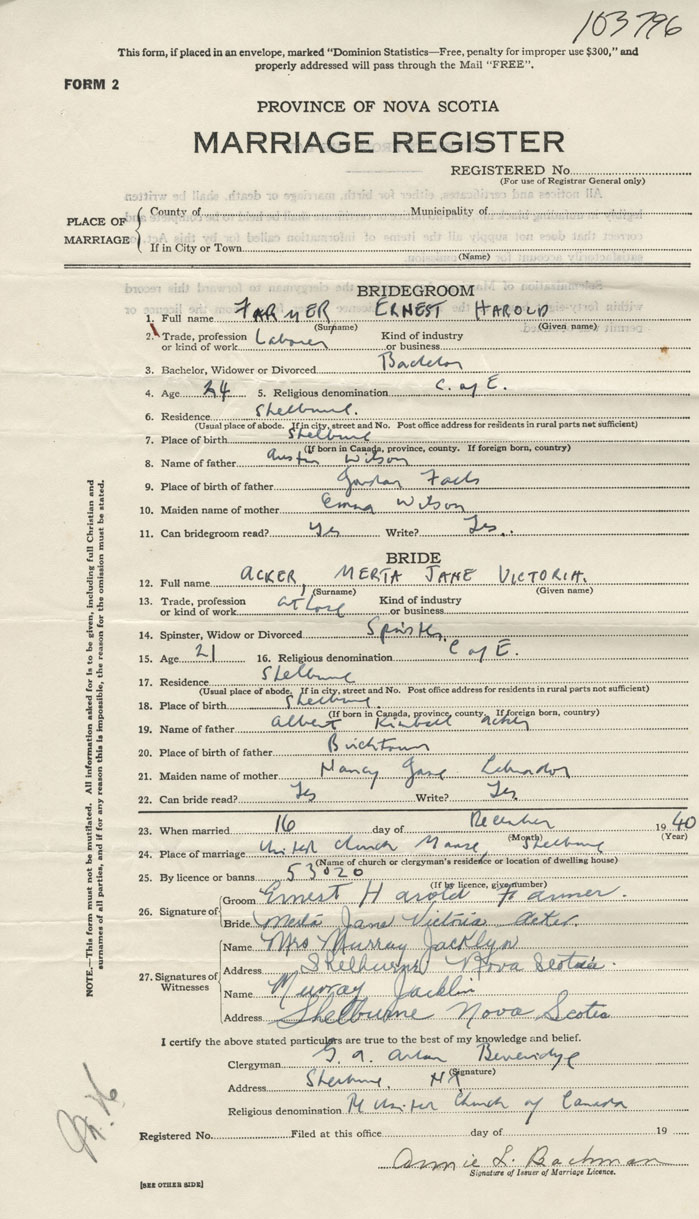 103796
This form, if placed in an envelope, marked "Dominion Statistics—Free, penalty for improper use $300," and
properly addressed will pass through the Mail "FREE".
FORM 2
PROVINCE OF NOVA SCOTIA
MARRIAGE REGISTER
REGISTERED No.
(For use of Registrar General only)
PLACE OF MARRIAGE
County of Municipality of
If in City or Town
(Name)
BRIDEGROOM
1. Full name FARMER ERNEST HAROLD
(Surname) (Given name)
2. Trade, profession or kind of work Laborer Kind of industry or business
3. Bachelor, Widower or Divorced Bachelor
4. Age 24 5. Religious denomination C. of E.
6. Residence Shelburne.
(Usual place of abode. If in city, street and No. Post office address for residents in rural parts not sufficient)
7. Place of birth Shelburne
(If born in Canada, province, county. If foreign born, country)
8. Name of father Austin Wilson
9. Place of birth of father Jordan Falls
10. Maiden name of mother Emma Wilson
11. Can bridegroom read? Yes Write? Yes.
BRIDE
12. Full name ACKER, MERTA JANE VICTORIA.
(Surname) (Given name)
13. Trade, profession or kind of work at home Kind of industry or business
14. Spinster, Widow or Divorced Spinster.
15. Age 21 16. Religious denomination C of E.
17. Residence Shelburne
(Usual place of abode. If in city, street and No. Post office address for residents in rural parts not sufficient)
18. Place of birth Shelburne.
(If born in Canada, province, county. If foreign born, country)
19. Name of father Albert Kimball Acker
20. Place of birth of father Birchtown
21. Maiden name of mother Nancy Jane
22. Can bride read? Yes Write? Yes.
23. When married 16 day of December 1940
(Month) (Year)
24. Place of marriage United Church Manse, Shelburne
(Name of church or clergyman's residence or location of dwelling house)
25. By licence or banns 53020
(If by licence, give number)
26. Signature of
Groom Ernest Harold Farmer.
Bride Merta Jane Victoria Acker.
27. Signatures of Witnesses
Name Mrs Murray Jacklyn
Address Shelburne Nova Scotia.
Name Murray Jacklin
Address Shelburne Nova Scotia
I certify the above stated particulars are true to the best of my knowledge and belief.
Clergyman G. A. Beveridge
(Signature)
Address Shelburne, NS
Religious denomination United Church of Canada
Registered No. Filed at this office day of 19
Annie L. Bachman
Signature of Issuer of Marriage Licence.
[SEE OTHER SIDE]
NOTE.—This form must not be mutilated. All information asked for is to be given, including full Christian and
surnames of all parties, and if for any reason this is impossible, the reason for the omission must be stated.